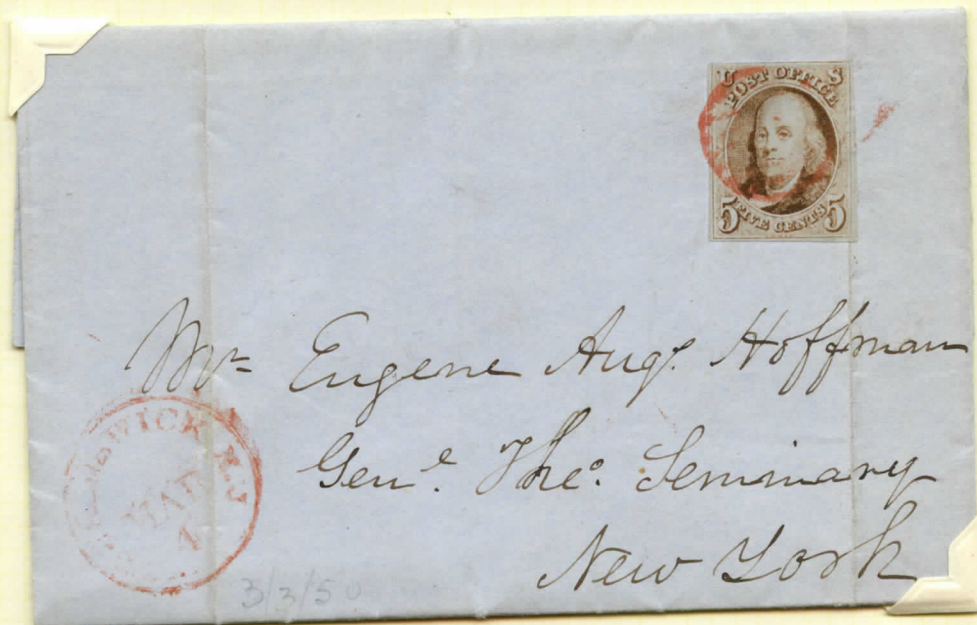 U S
POST OFFICE
5 FIVE CENTS 5
Mr. Eugene Augs. Hoffman
Genl. Theo. Seminary
New York
WICK N.J
MAR
4
3/3/50